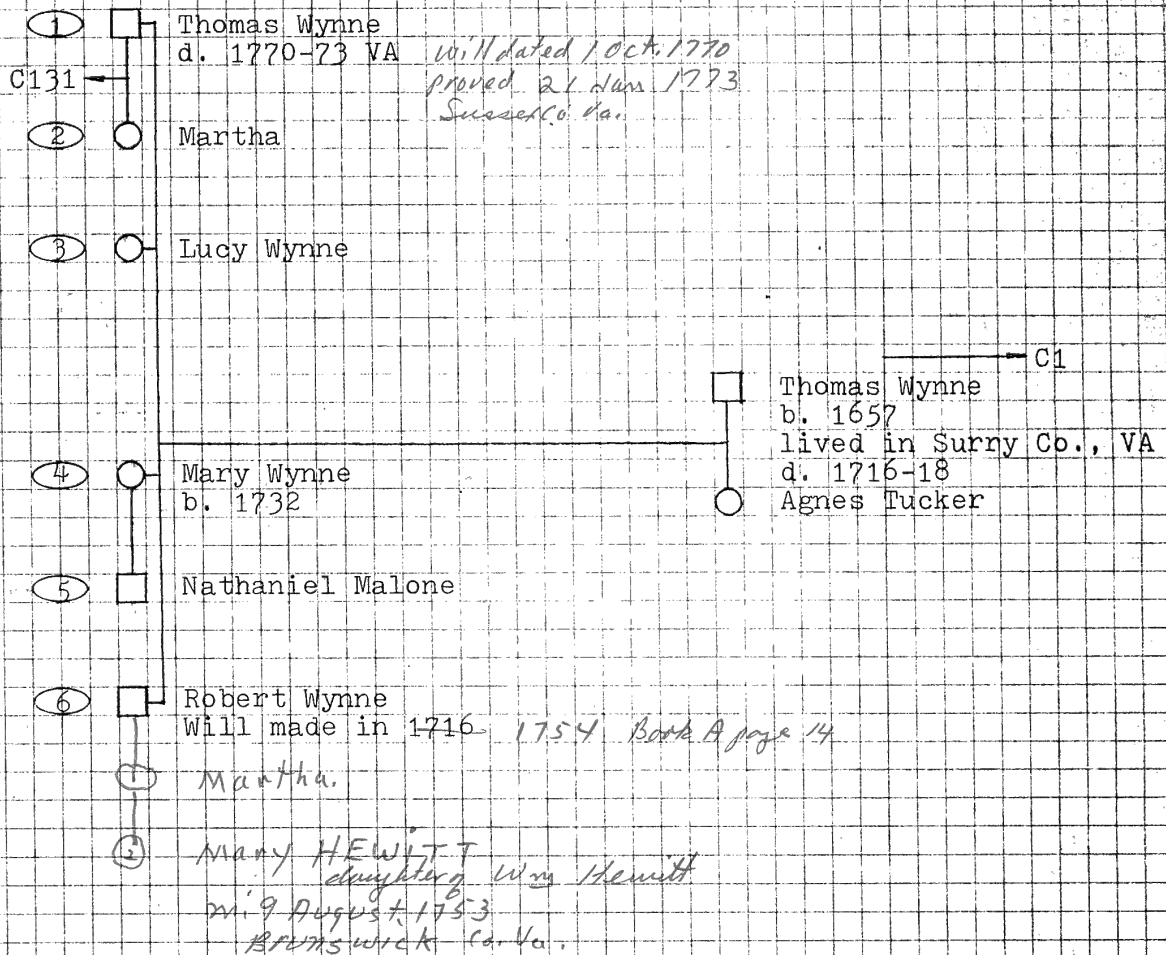 1 Thomas Wynne
d. 1770-73 VA will dated 1 Oct. 1770
C131 proved 21 Jan 1773
Sussex Co Va.
2 Martha
3 Lucy Wynne
C1
Thomas Wynne
b. 1657
lived in Surry Co., VA
d. 1716-18
Agnes Tucker
4 Mary Wynne
b. 1732
5 Nathaniel Malone
6 Robert Wynne
Will made in 1716 1754 Book A page 14
Martha.
2 Mary HEWITT
daughter of Wm Hewitt
m. 9 August 1753
Brunswick Co. Va.